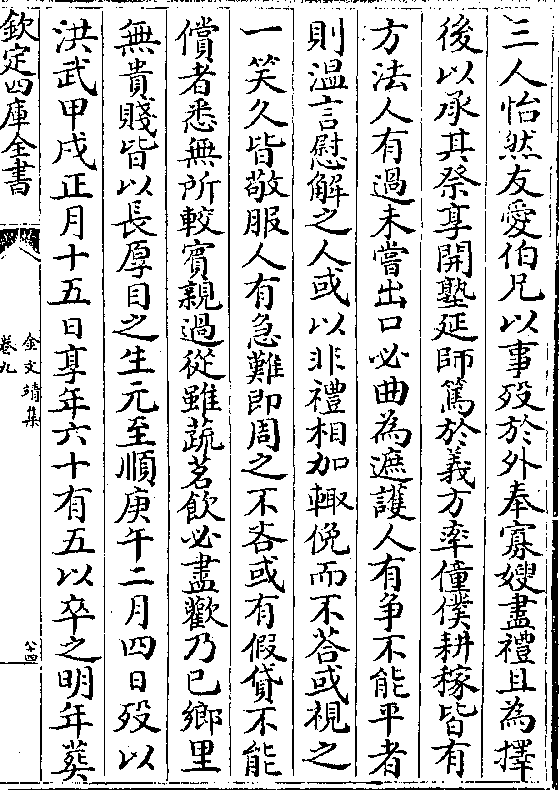 三人怡然友愛伯兄以事歿於外奉寡嫂盡禮且為擇
後以承其祭享開塾延師篤於義方率僮僕耕稼皆有
方法人有過未嘗出口必曲為遮護人有争不能平者
則温言慰解之人或以非禮相加輙俛而不荅或視之
一笑久皆敬服人有急難即周之不吝或有假貸不能
償者悉無所較賓親過從雖蔬茗飲必盡歡乃已鄉里
無貴賤皆以長厚目之生元至順庚午二月四日歿以
洪武甲戌正月十五日享年六十有五以卒之明年葬
欽定四庫全書
金文靖集
卷九
六四